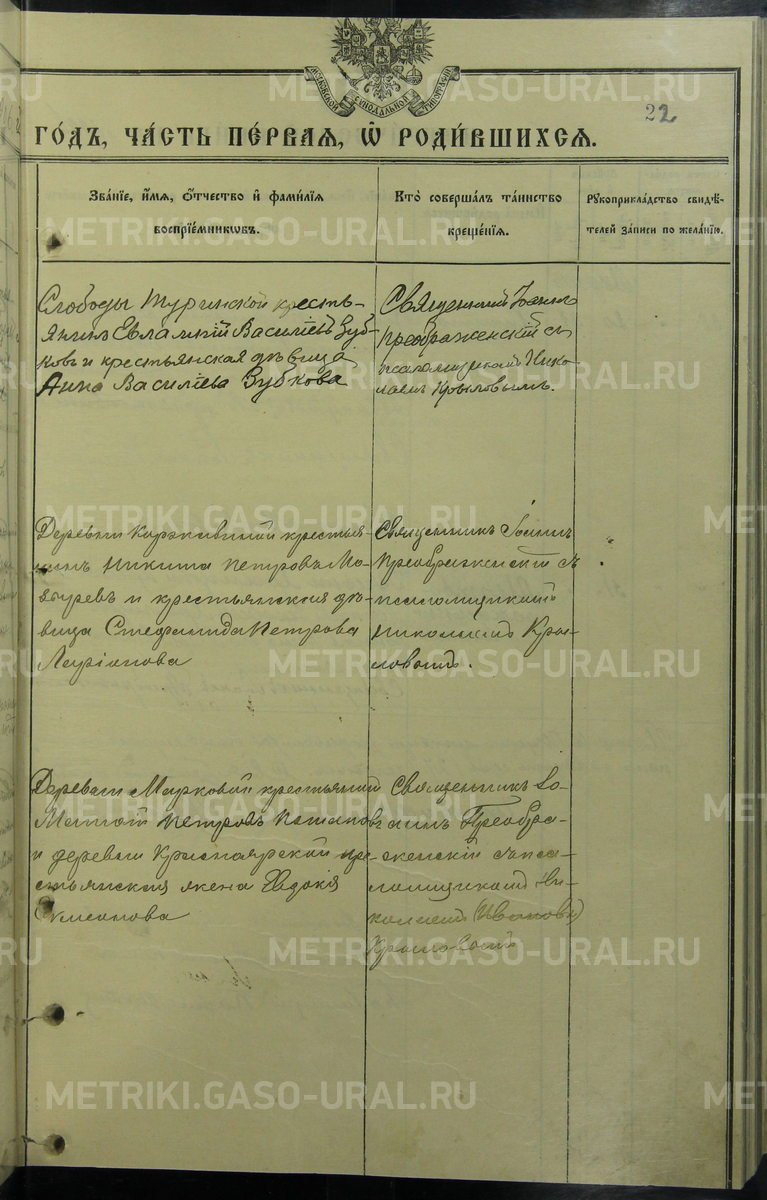 МОСКОВСКОЙ СѴНОДАЛЬНОЙ ТИПОГРАФІИ
22
ГО́ДЪ, ЧА́СТЬ ПЕ́РВАЯ, Ѡ҆ РОДИ́ВШИХСѦ.
Зва́нїе, и҆́мѧ, ѻ҆́тчество и҆ фами́лїѧ
воспрїе́мникѡвъ.
Кто̀ соверша́лъ та́инство
креще́нїѧ.
Рꙋкоприкла́дство свидѣ́-
телей за́писи по жела́нїю.
Слободы Туринской кресть-
янинъ Евлампій Василіевъ Зуб-
ковъ и крестьянская дѣвица
Анна Василіева Зубкова
Священникъ Іоаннъ
Преображенскій съ
псаломщикомъ Нико-
лаемъ Крыловымъ.
Деревни крестья-
нинъ Никита Петровъ
и крестьянская дѣ-
вица Стефанида Петрова
Ларіонова
Священникъ Іоаннъ
Преображенскій съ
псаломщикомъ
Николаемъ Кры-
ловымъ.
Деревни Марковой крестьянинъ
Петровъ Потаповъ
и деревни Красноярской кре-
стьянская жена Евдокія
Священникъ Іо-
аннъ Преобра-
женскій съ пса-
ломщикомъ Ни-
колаемъ (Ивановы)
Крыловымъ
METRIKI.GASO-URAL.RU